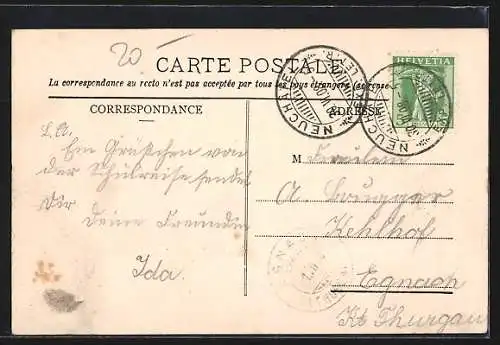 20
CARTE POSTALE
HELVETIA
La correspondance au recto n'est pas acceptée par tous les pays étrangers
CORRESPONDANCE
ADRESSE
NEUCHATEL
NEUCHATEL
L. A.
Ein Grüßchen von
der Schulreise sendet
Dir
deine Freundin
Ida.
M Fräulein
A. Brugger
Kehlhof
Egnach
Kt Thurgau